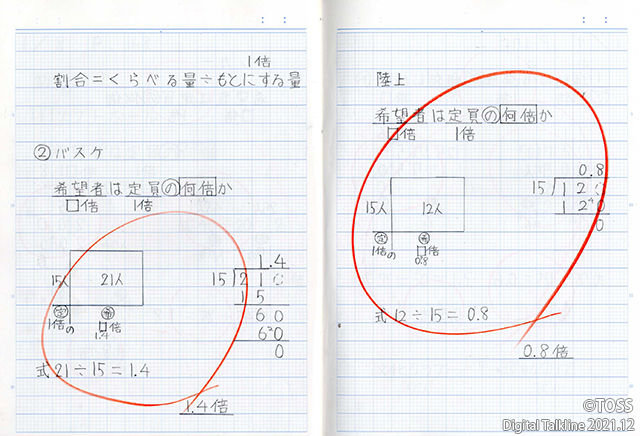 1倍
割合=くらべる量÷もとにする量
②バスケ
希望者は定員の何倍か
□倍 1倍
15人 21人
定 希
1倍の □倍
1.4
1.4
15 210
15
60
60
0
式 21÷15=1.4
1.4倍
陸上
希望者は定員の何倍か
□倍 1倍
15人 12人
定 希
1倍の □倍
0.8
0.8
15 120
120
0
式 12÷15=0.8
0.8倍
©TOSS
Digital Talkline 2021.12